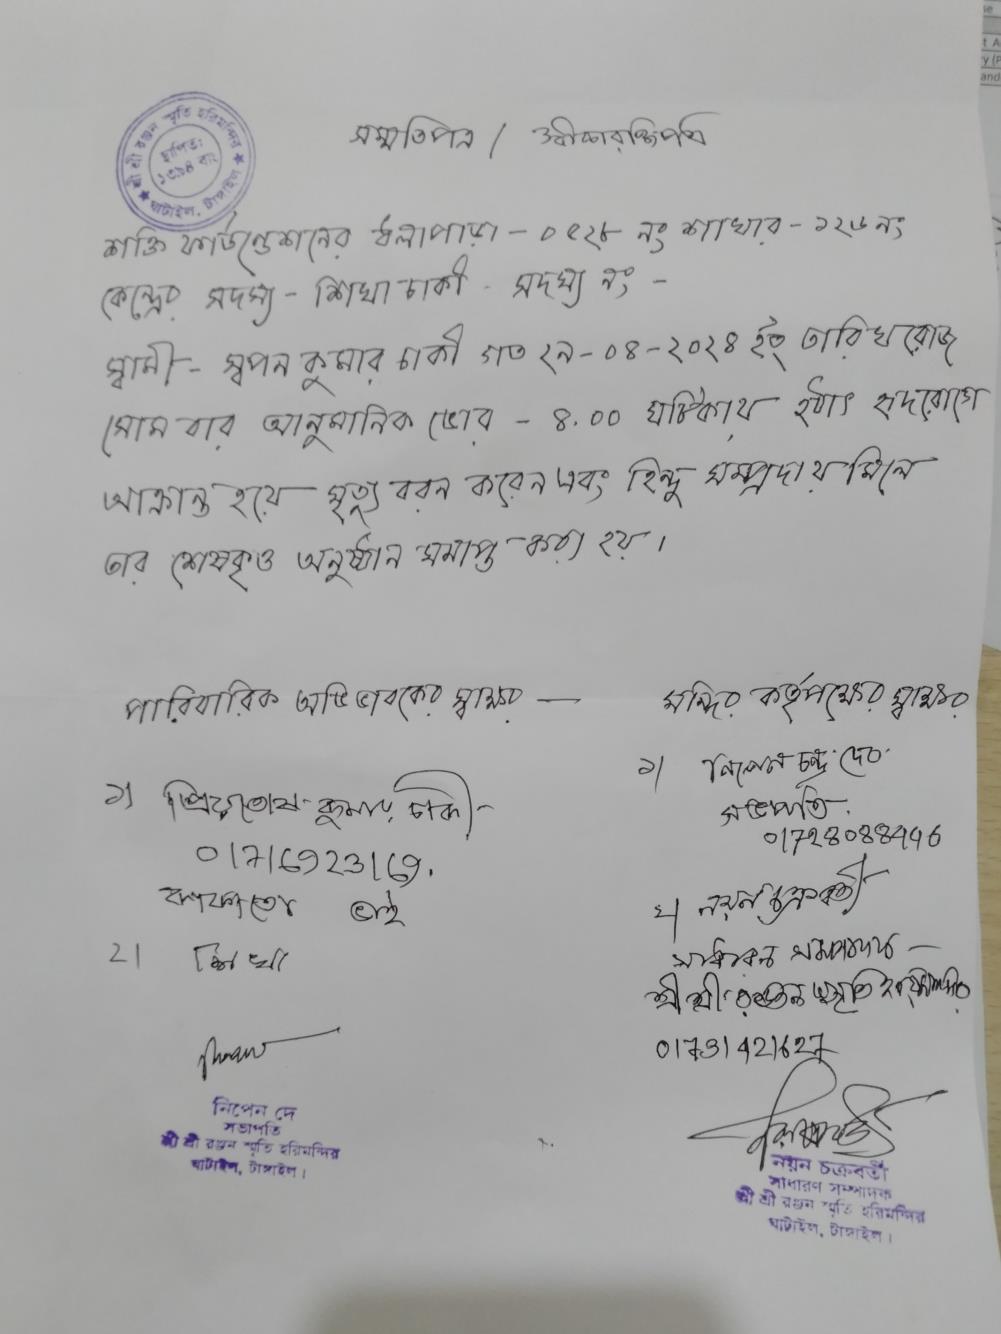 শ্রী শ্রী রঞ্জন স্মৃতি হরিমন্দির
স্থাপিত:
১৩৯৪ বাং
ঘাটাইল, টাঙ্গাইল
সম্মতিপত্র / স্বীকারোক্তিপত্র
শক্তি ফাউন্ডেশনের ধলাপাড়া - ০৫২৮ নং শাখার - ১২৬ নং
কেন্দ্রের সদস্য - শিখা চাকী - সদস্য নং -
স্বামী - স্বপন কুমার চাকী গত ২৯-০৪-২০২৪ ইং তারিখ রোজ
সোমবার আনুমানিক ভোর - ৪.০০ ঘটিকায় হঠাৎ হৃদরোগে
আক্রান্ত হয়ে মৃত্যু বরন করেন এবং হিন্দু সম্প্রদায় মিলে
তার শেষকৃত অনুষ্ঠান সমাপ্ত করা হয়।
পারিবারিক অভিভাবকের স্বাক্ষর —
মন্দির কর্তৃপক্ষের স্বাক্ষর
১) প্রিয়তোষ কুমার চাকী
01716923169.
ভাই
২। শিখা
১) নিপেন চন্দ্র দেব
সভাপতি
01728088446
২) নয়ন চক্রবর্তী
সাধারন সম্পাদক —
শ্রী শ্রী রঞ্জন স্মৃতি হরিমন্দির
01731421627
নিপেন দে
সভাপতি
শ্রী শ্রী রঞ্জন স্মৃতি হরিমন্দির
ঘাটাইল, টাঙ্গাইল।
নয়ন চক্রবর্তী
সাধারণ সম্পাদক
শ্রী শ্রী রঞ্জন স্মৃতি হরিমন্দির
ঘাটাইল, টাঙ্গাইল।